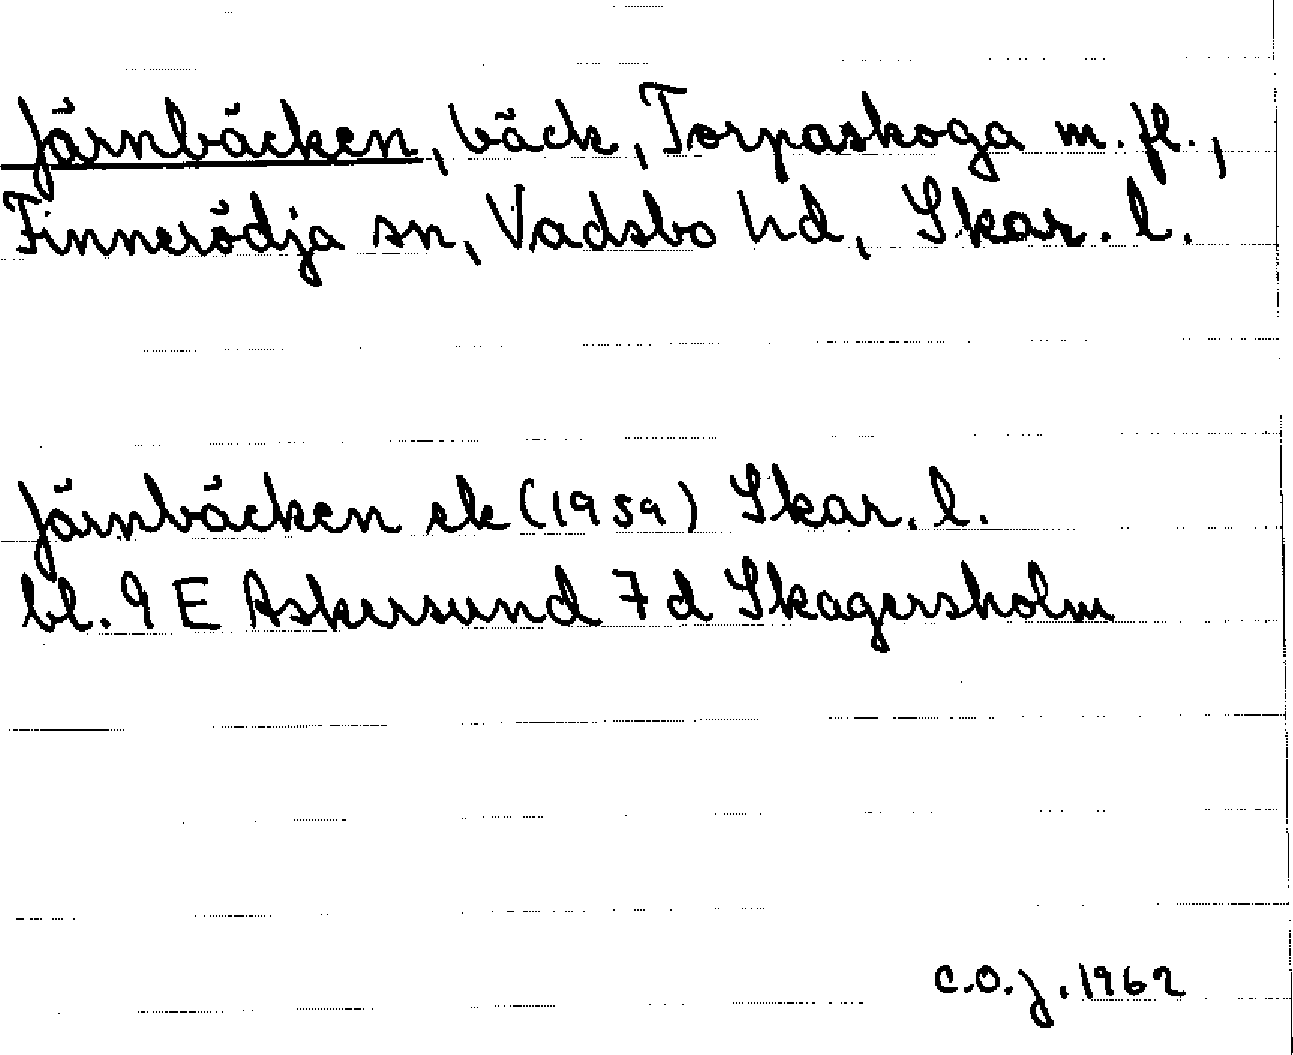 Järnbäcken, bäck, Torpaskoga m. fl.,
Finnerödja sn, Vadsbo hd, Skar. l.
Järnbäcken ek (1959) Skar. l.
bl. 9 E Askersund 7 d Skagersholm
C.O.J. 1962